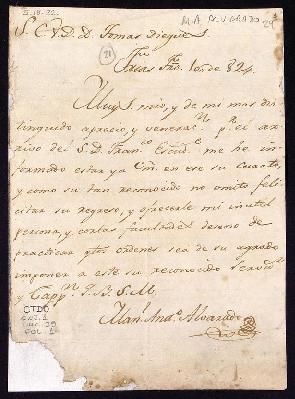 II-18-22.
M.A. ALVARADO 29
S. C. V. D. D. Tomas Dieguez
21
Muy S. mio, y de mi mas dis-
tinguido aprecio, y venerac.n p.r el ar-
rivo del S. D. Fran.co Escud.o me he in-
formado estar ya Vm en ese su cuarto,
y como su tan reconocido no omito feli-
citar su regreso, y ofrecerle mi inutil
persona, y cortas facultades deseoso de
practicar q.tas ordenes sea de su agrado
imponer a este su reconocido servid.r
y Capp.n Q. B. S. M.
Man.l And.s Alvarado
OTDO
FOL 1